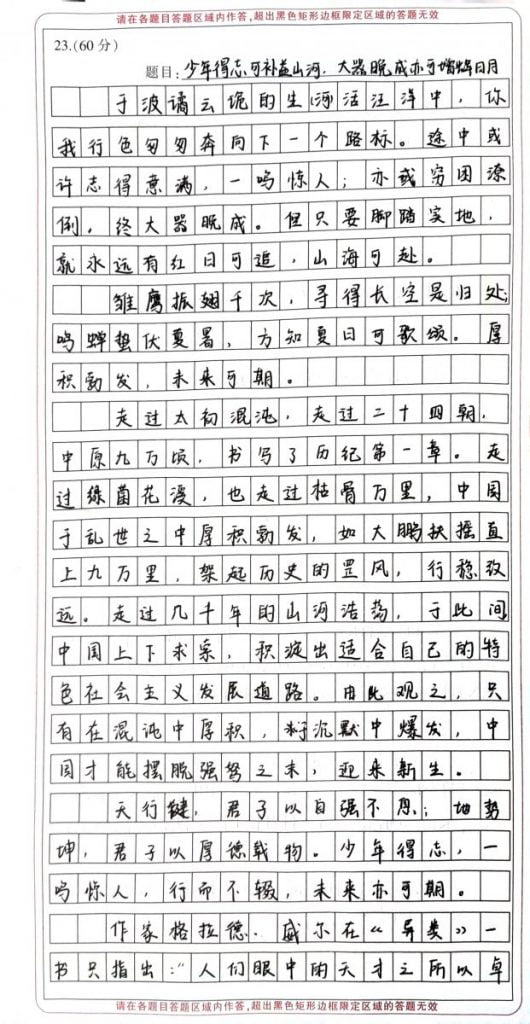 请在各题目答题区域内作答,超出黑色矩形边框限定区域的答题无效
23.(60分)
题目:少年得志可补益山河,大器晚成亦可增辉日月
于波谲云诡的生活汪洋中,你
我行色匆匆奔向下一个路标。途中或
许志得意满,一鸣惊人;亦或穷困潦
倒,终大器晚成。但只要脚踏实地,
就永远有红日可追,山海可赴。
雏鹰振翅千次,寻得长空是归处;
鸣蝉蛰伏夏暑,方知夏日可歌颂。厚
积勃发,未来可期。
走过太初混沌,走过二十四朝,
中原九万顷,书写了历纪第一章。走
过绿茵花溪,也走过枯骨万里,中国
于乱世之中厚积勃发,如大鹏扶摇直
上九万里,架起历史的罡风,行稳致
远。走过几千年的山河浩荡,于此间
中国上下求索,积淀出适合自己的特
色社会主义发展道路。由此观之,只
有在混沌中厚积,于沉默中爆发,中
国才能摆脱强弩之末,迎来新生。
天行键,君子以自强不息;地势
坤,君子以厚德载物。少年得志,一
鸣惊人,行而不辍,未来亦可期。
作家格拉德、威尔在《异类》一
书只指出:"人们眼中的天才之所以卓
请在各题目答题区域内作答,超出黑色矩形边框限定区域的答题无效